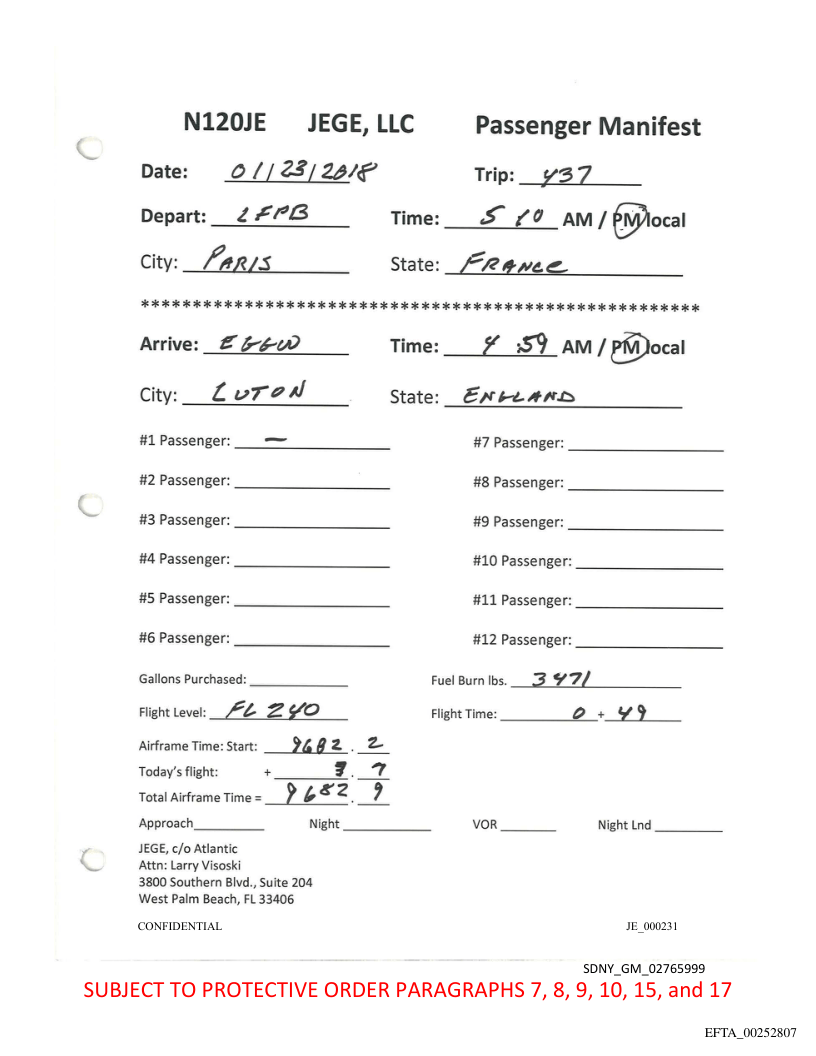 N120JE JEGE, LLC Passenger Manifest
Date: 01/23/2018 Trip: 437
Depart: LFPB Time: 5 10 AM / PM local
City: PARIS State: FRANCE
******************************************************
Arrive: EGGW Time: 4 :59 AM / PM local
City: LUTON State: ENGLAND
#1 Passenger: — #7 Passenger:
#2 Passenger: #8 Passenger:
#3 Passenger: #9 Passenger:
#4 Passenger: #10 Passenger:
#5 Passenger: #11 Passenger:
#6 Passenger: #12 Passenger:
Gallons Purchased: Fuel Burn lbs. 3471
Flight Level: FL 240 Flight Time: 0 + 49
Airframe Time: Start: 9682 . 2
Today's flight: + . 7
Total Airframe Time = 9682 . 9
Approach Night VOR Night Lnd
JEGE, c/o Atlantic
Attn: Larry Visoski
3800 Southern Blvd., Suite 204
West Palm Beach, FL 33406
CONFIDENTIAL JE_000231
SDNY_GM_02765999
SUBJECT TO PROTECTIVE ORDER PARAGRAPHS 7, 8, 9, 10, 15, and 17
EFTA_00252807